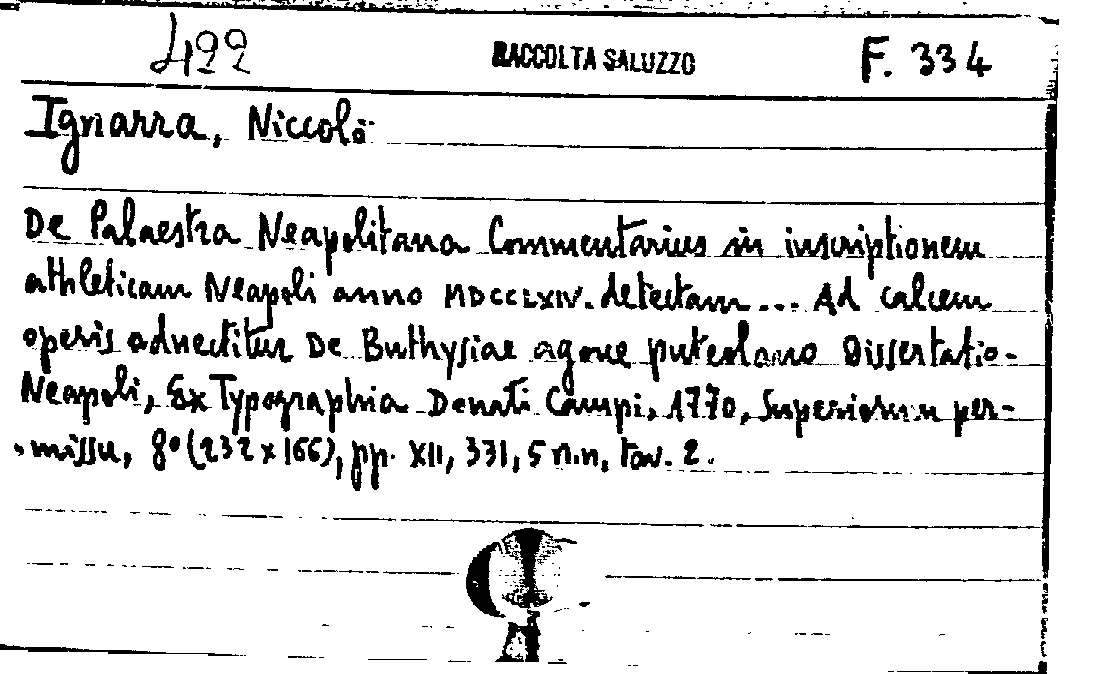 422 RACCOLTA SALUZZO F. 334
Ignarra, Niccolò
De Palaestra Neapolitana Commentarius in inscriptionem
athleticam Neapoli anno MDCCLXIV. detectam... Ad calcem
operis adnectitur De Buthysiae agone puteolano Dissertatio-
Neapoli, Ex Typographia Donati Campi, 1770, Superiorum per-
missu, 8° (232 x 166), pp. XII, 331, 5 n.n, tav. 2.